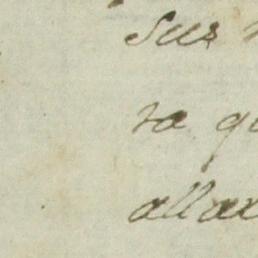 sus
ra qu
allar